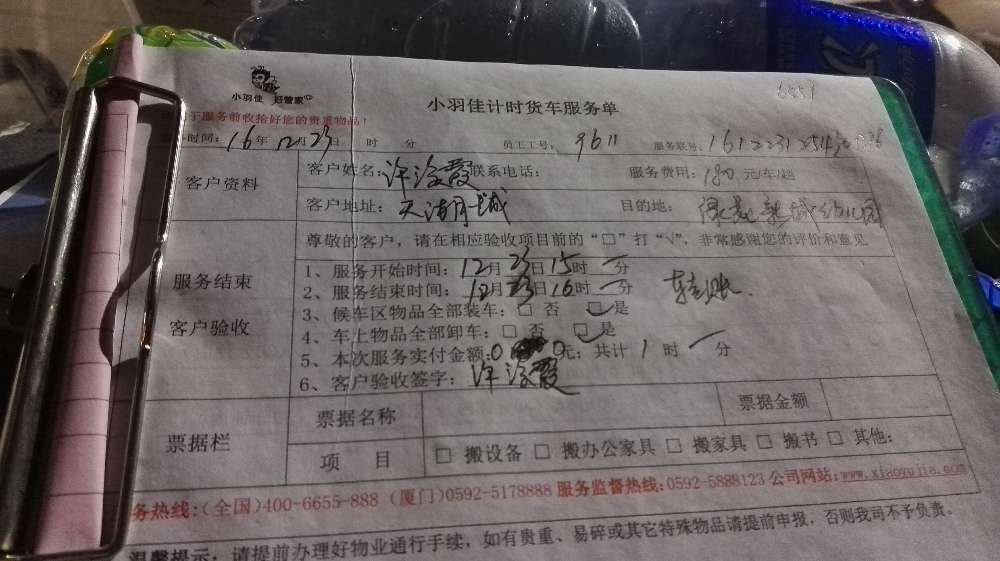 小羽佳 好管家
小羽佳计时货车服务单
于服务前收拾好您的贵重物品！
时间：16年12月23日 时 分 员工工号：9611 服务联号：
客户资料
客户姓名：许 霞 联系电话： 服务费用：180元/车/趟
客户地址：天湖 城 目的地： 城幼儿园
服务结束
客户验收
尊敬的客户，请在相应验收项目前的“□”打“√”，非常感谢您的评价和意见
1、服务开始时间：12月23日15时一分
2、服务结束时间：12月23日16时一分 转账
3、候车区物品全部装车：□ 否 □ 是
4、车上物品全部卸车：□ 否 □ 是
5、本次服务实付金额：0 0元；共计1时一分
6、客户验收签字：许 霞
票据栏
票据名称 票据金额
项 目 □ 搬设备 □ 搬办公家具 □ 搬家具 □ 搬书 □ 其他：
务热线：(全国)400-6655-888 (厦门)0592-5178888 服务监督热线：0592-5888123 公司网站：www.xiaoyujia.com
温馨提示：请提前办理好物业通行手续，如有贵重、易碎或其它特殊物品请提前申报，否则我司不予负责。